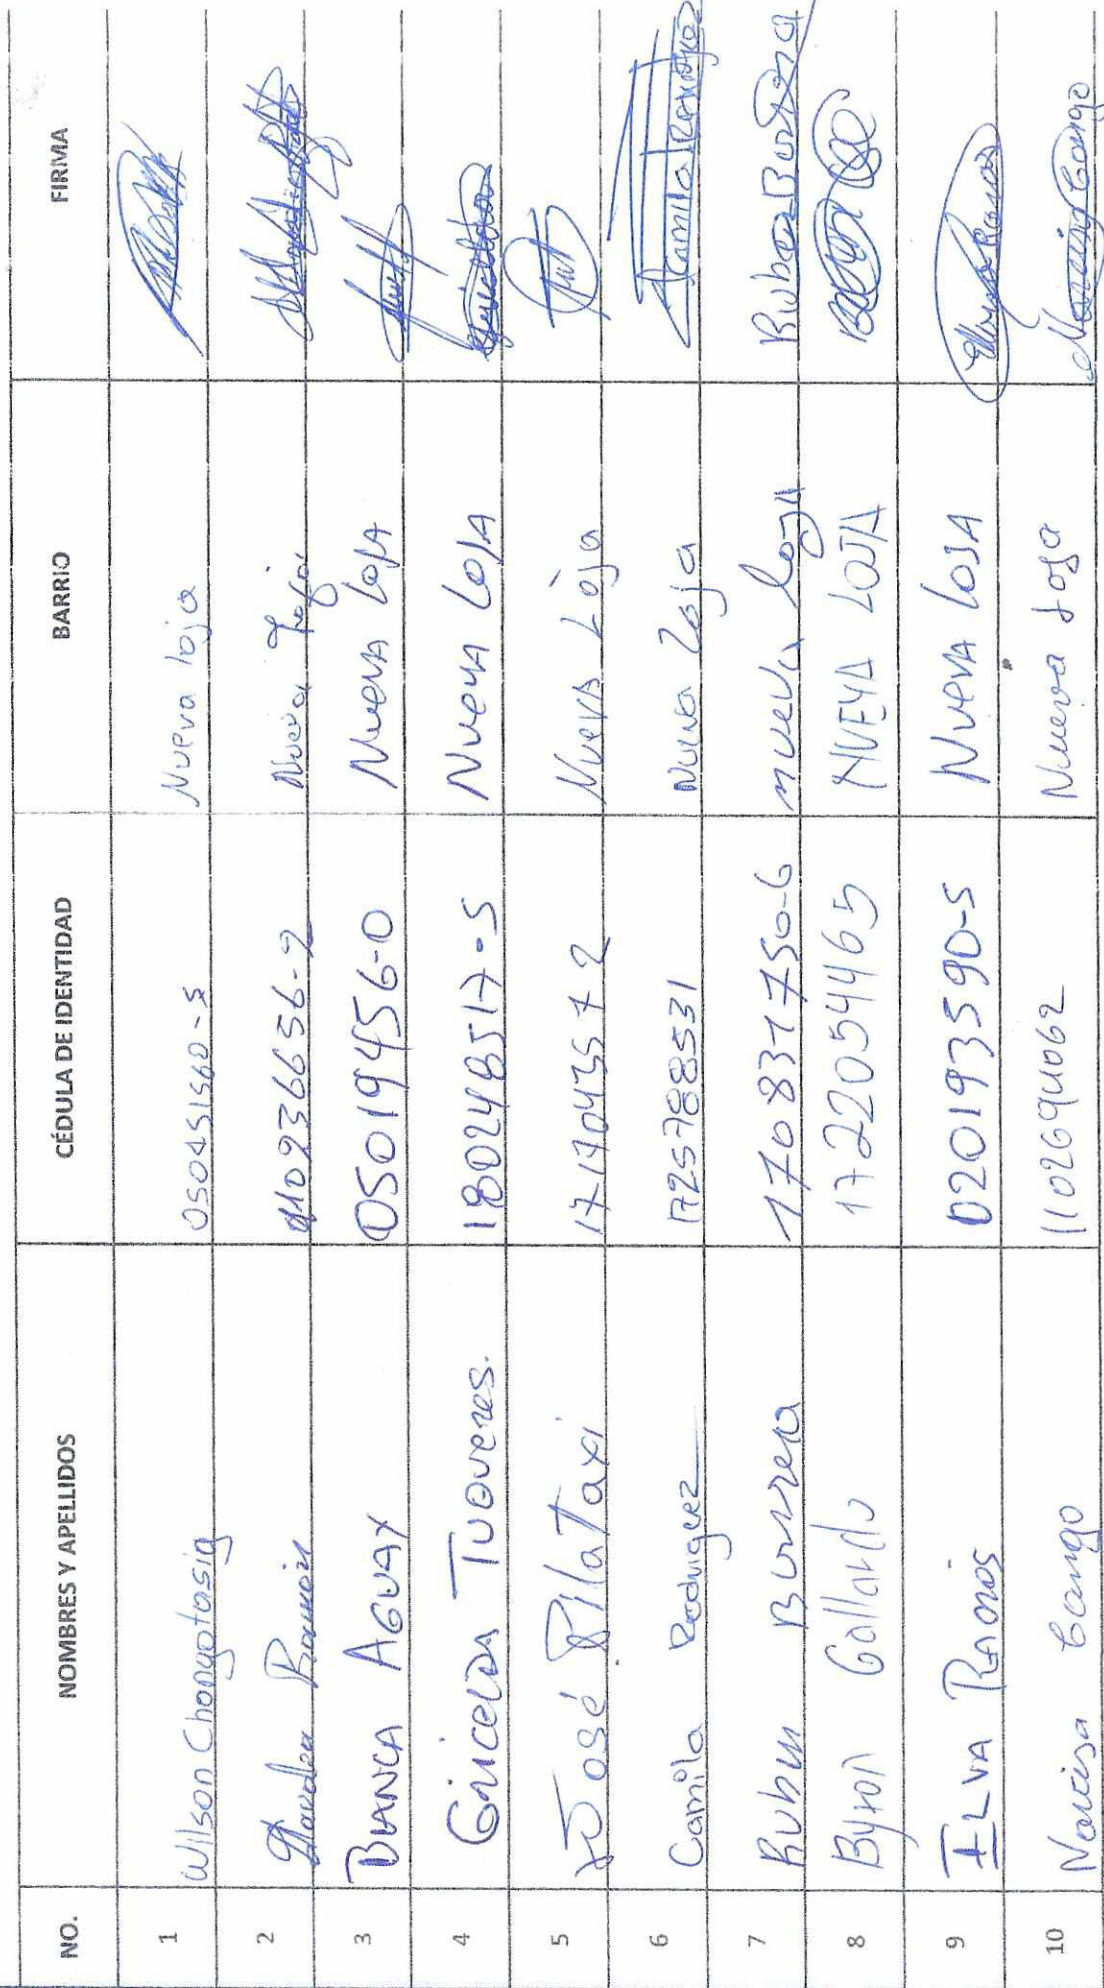 NO. NOMBRES Y APELLIDOS CÉDULA DE IDENTIDAD BARRIO FIRMA
1 Wilson Changotasig 050451560-5 Nueva loja
2 Nueva Loja
3 BLANCA AGUAY 050194556-0 NUEVA LOJA
4 GRICELDA TUQUERES. 180248517-5 NUEVA LOJA
5 José PilaTaxi 1717043572 Nueva Loja
6 Camila Rodriguez 1725788531 Nueva Loja Camila Rodriguez
7 Ruben Burrera 170831756-6 nueva loja
8 Byron Gallardo 1722054465 NUEVA LOJA
9 ILVA RAMOS 020193590-5 NUEVA LOJA
10 Narcisa Cango 1102694062 Nueva Loja Narcisa Cango